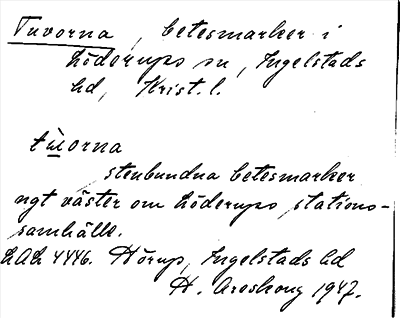 Tuvorna, betesmarker i
Löderups sn, Ingelstads
hd, Krist. l.
tùorna
stenbundna betesmarker
ngt väster om Löderups stations-
samhälle.
LAL 4446. Hörup, Ingelstads hd
H. Areskoug 1947.